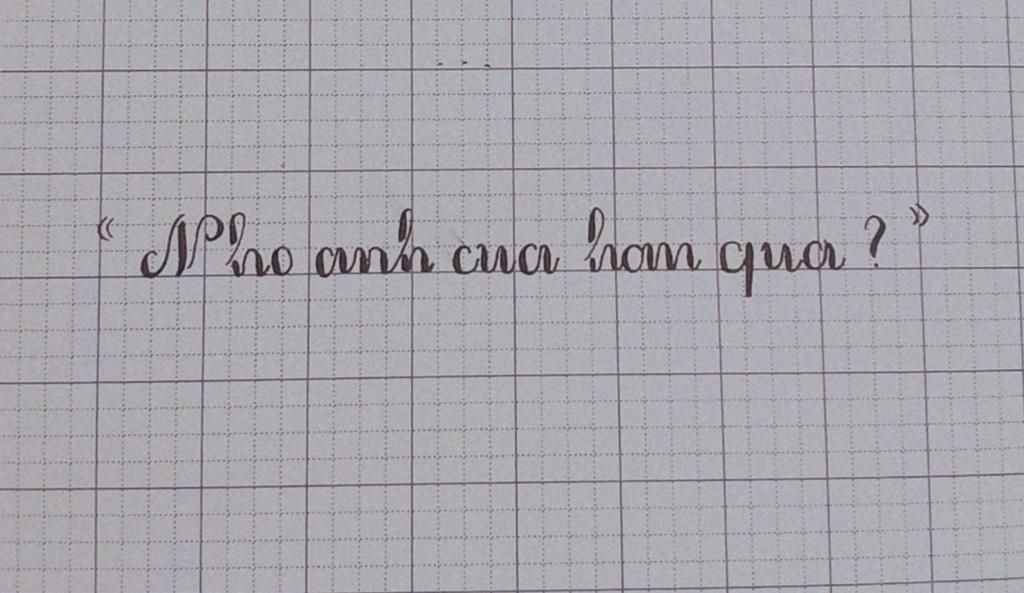 “ Nho anh cua hom qua ? ”